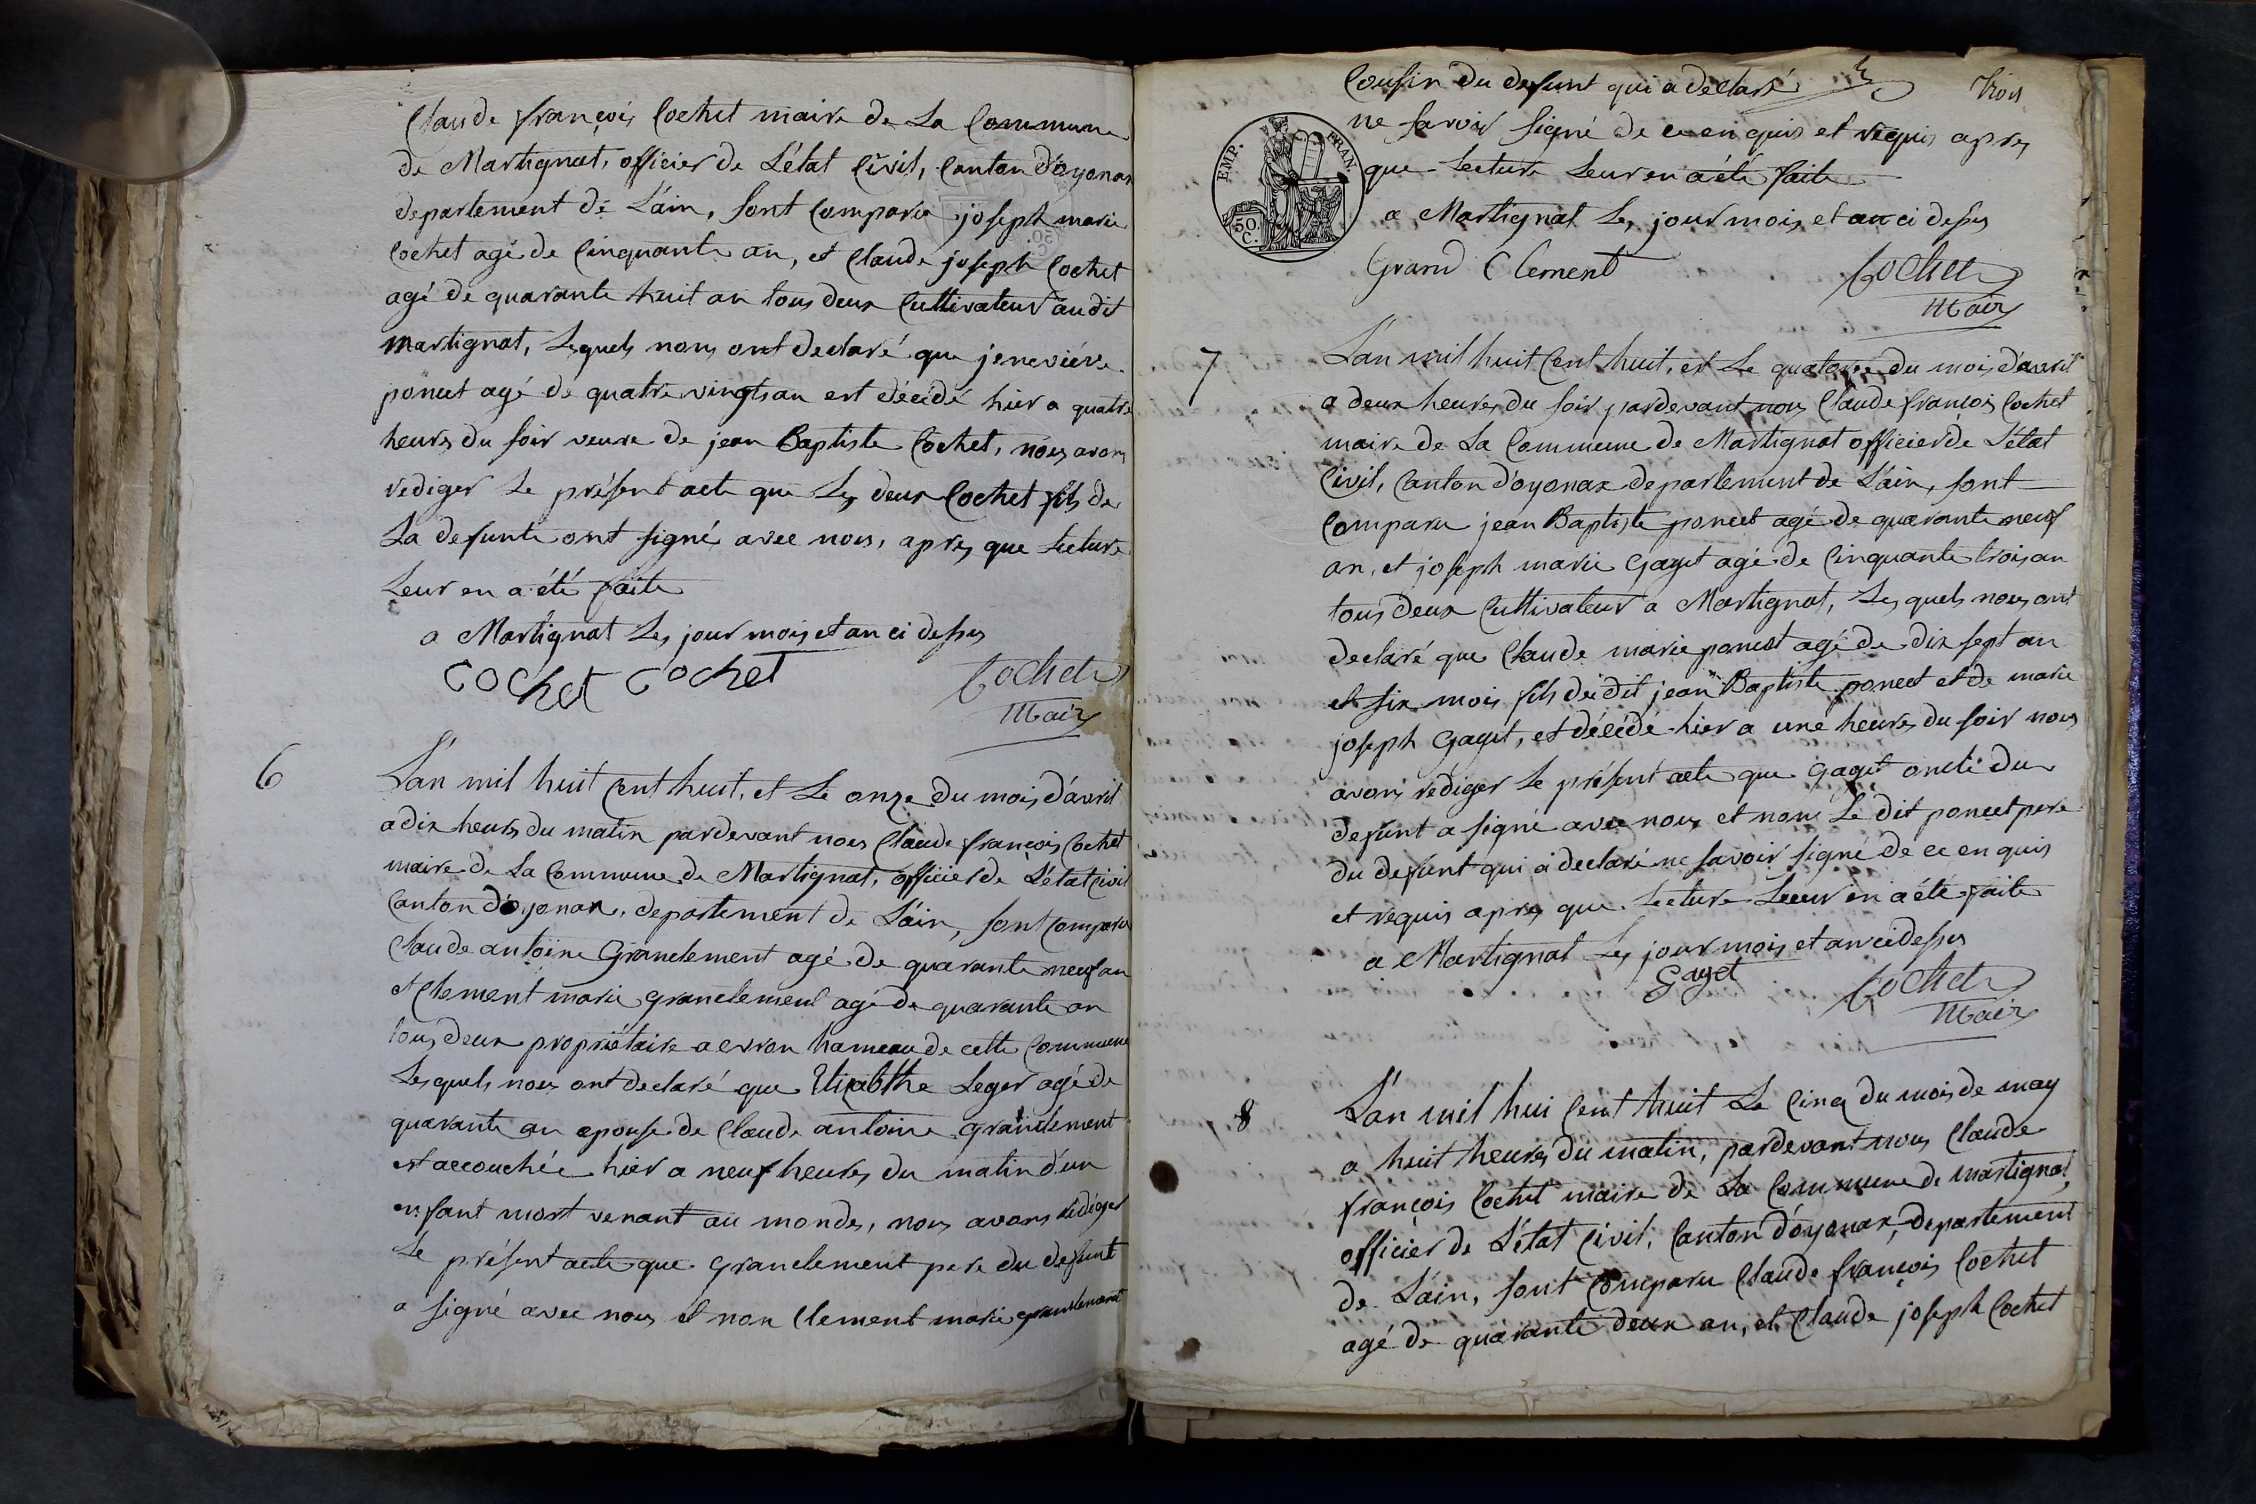 Claude françois Cochet maire de La Commune
de Martignat, officier de L'état Civil, Canton d'oyonax
departement de L'áin, sont Comparu joseph marie
Cochet agé de Cinquante an, et Claude joseph Cochet
agé de quarante huit an tous deux Cultivateur audit
Martignat, Lesquels nous ont declaré que jeneviéve
poncet agé de quatre vingts an est décédé hier a quatre
heures du soir veuve de jean Baptiste Cochet, nous avons
rediger Le présent acte que Les deux Cochet fils de
La defunte ont signé avec nous, apres que Lecture
Leur en a été faite
a Martignat Les jour mois et an ci dessus
Cochet Cochet Cochet
Maire
6
L'an mil huit Cent huit, et Le onze du mois d'ávril
a dix heures du matin pardevant nous Claude françois Cochet
maire de La Commune de Martignat, officier de L'état Civil
Canton d'oyonax, departement de L'áin, sont Comparu
Claude antoine Granclement agé de quarante neuf an
et Clement marie granclement agé de quarante an
tous deux propriétaire a evron hameau de cette Commune
Lesquels nous ont declaré que Elizabthe Leger agé de
quarante an epouse de Claude antoine granclement
est accouchée hier a neuf heures du matin d'un
enfant mort venant au monde, nous avons rédiger
Le présent acte que granclement pere du defunt
a signé avec nous et non Clement marie granclement
Cousin du defunt qui a declaré
trois
ne savoir signé de ce enquis et requis apres
que Lecture Leur en a été faite
a Martignat Les jour mois et an ci dessus
EMP. FRAN.
50. C.
Grand Clement Cochet
Maire
7
L'an mil huit Cent huit, et Le quatorze du mois d'avril
a deux heures du soir pardevant nous Claude françois Cochet
maire de La Commune de Martignat officier de L'état
Civil, Canton d'oyonax departement de L'áin, sont
Comparu jean Baptiste poncet agé de quarante neuf
an, et joseph marie Gayet agé de Cinquante trois an
tous deux Cultivateur a Martignat, Lesquels nous ont
declaré que Claude marie poncet agé de dix sept an
et six mois fils dudit jean Baptiste poncet et de marie
joseph Gayet, est décédé hier a une heures du soir nous
avons rédiger Le présent acte que Gayet oncle du
defunt a signé avec nous et non Le dit poncet pere
du defunt qui a declaré ne savoir signé de ce enquis
et requis apres que Lecture Leur en a été faite
a Martignat Les jour mois et an ci dessus
Gayet Cochet
Maire
8
L'an mil hui Cent huit Le Cinq du mois de may
a huit heures du matin, pardevant nous Claude
françois Cochet maire de La Commune de martignat,
officier de L'état Civil, Canton d'oyonax, departement
de L'áin, sont Comparu Claude françois Cochet
agé de quarante deux an, et Claude joseph Cochet